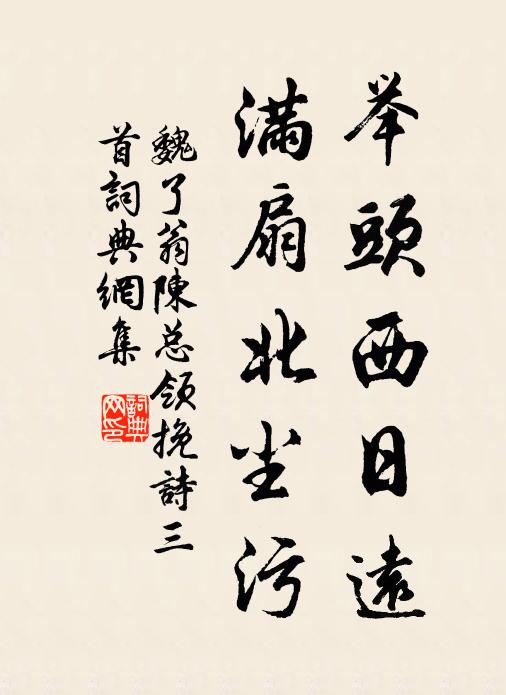 举頭西日遠
满扇北尘污
魏了翁陳总领挽詩三
首詞典網集
詞典
网印